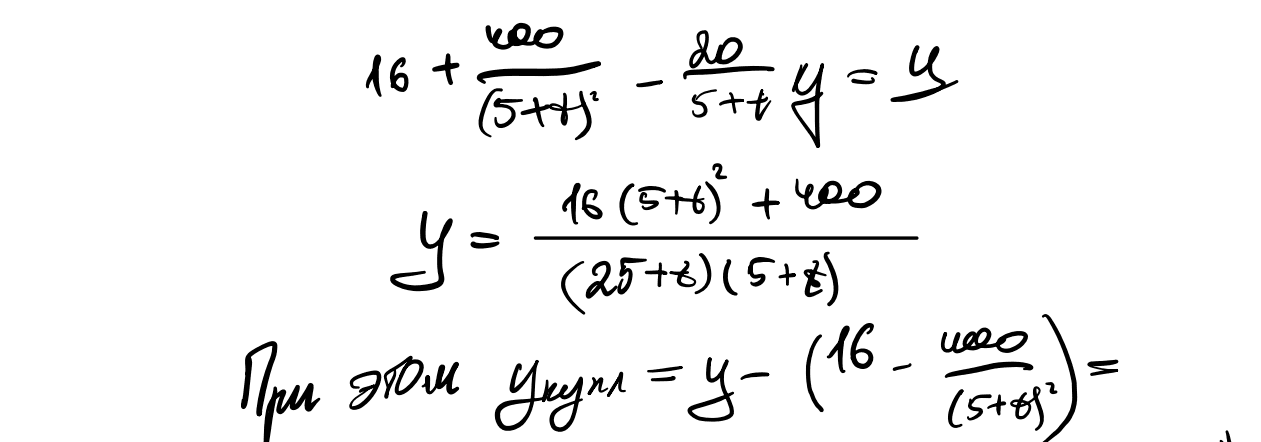 16 + 400/(5+t)² − 20/(5+t) y = y
y = (16(5+t)² + 400)/((25+t)(5+t))
При этом y купл = y − (16 − 400/(5+t)²) =